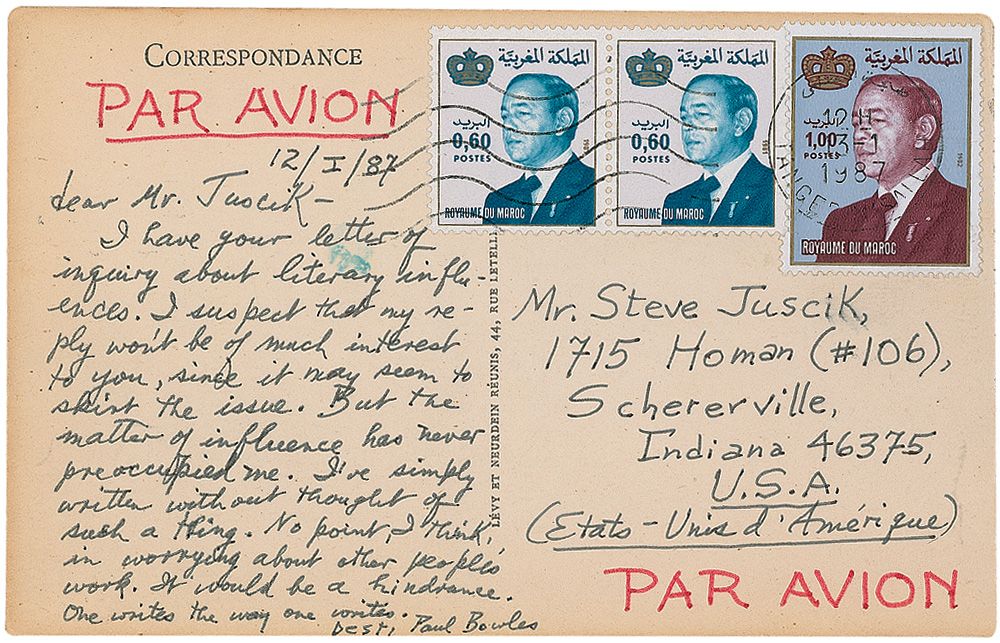 CORRESPONDANCE
PAR AVION
12/I/87
dear Mr. Juscik—
I have your letter of
inquiry about literary influ-
ences. I suspect that my re-
ply won't be of much interest
to you, since it may seem to
skirt the issue. But the
matter of influence has never
preoccupied me. I've simply
written without thought of
such a thing. No point, I think,
in worrying about other peoples'
work. It would be a hindrance.
One writes the way one writes.
Best, Paul Bowles
LÉVY ET NEURDEIN RÉUNIS, 44, RUE LETELL
المملكة المغربية
البريد
0,60
POSTES
1985
ROYAUME DU MAROC
المملكة المغربية
البريد
0,60
POSTES
1985
ROYAUME DU MAROC
المملكة المغربية
البريد
1,00
POSTES
1982
ROYAUME DU MAROC
12-H
13-1
1987
TANGER
Mr. Steve Juscik,
1715 Homan (#106),
Schererville,
Indiana 46375,
U.S.A.
(Etats-Unis d'Amérique)
PAR AVION